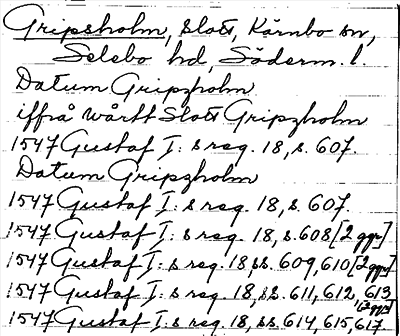 Gripsholm, slott, Kärnbo sn,
Selebo hd, Söderm. l.
Datum Gripzholm
iffrå wårtt Slott Gripzholm
1547 Gustaf I: s reg. 18, s. 607.
Datum Gripzholm
1547 Gustaf I: s reg. 18, s. 607.
1547 Gustaf I: s reg. 18, s. 608 [2 ggr]
1547 Gustaf I: s reg. 18, ss. 609, 610 [2 ggr]
1547 Gustaf I: s reg. 18, ss. 611, 612, 613 [2 ggr]
1547 Gustaf I: s reg. 18, ss. 614, 615, 617